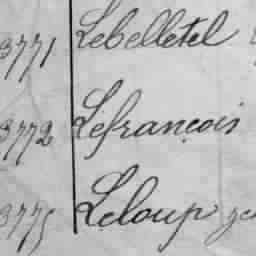 3771 Lebelletel
3772 Lefrançois
3775 Leloup